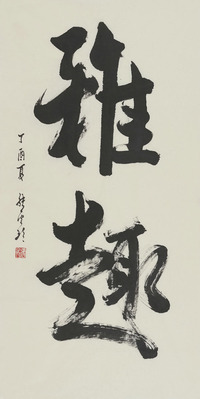 雅趣
丁酉夏